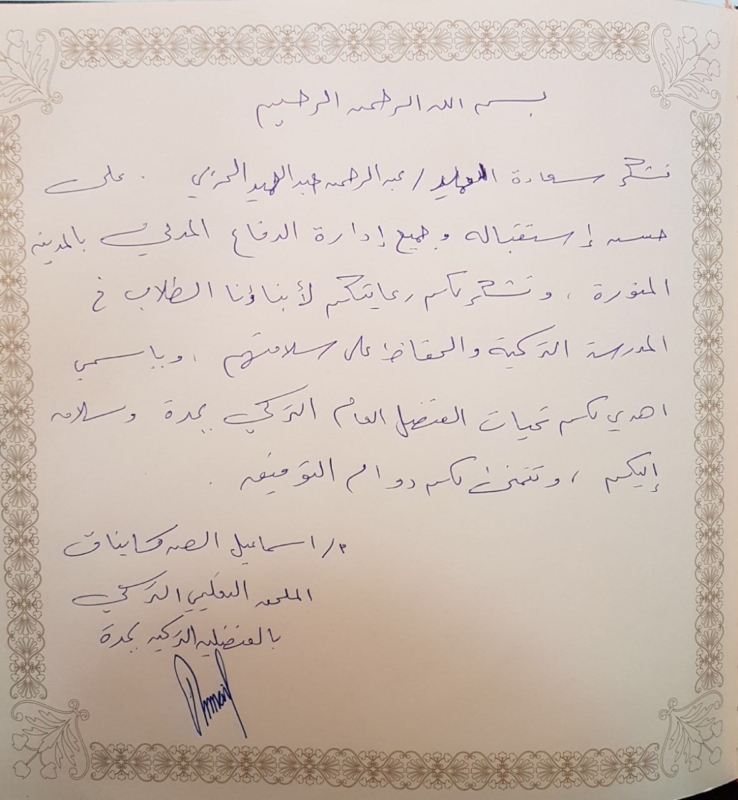 بسم الله الرحمن الرحيم
نشكر سعادة العميد / عبدالرحمن عبدالحميد الحربي . على
حسن إستقباله وجميع إدارة الدفاع المدني بالمدينة
المنورة ، ونشكر لكم رعايتكم لأبناؤنا الطلاب في
المدرسة التركية والحفاظ على سلامتهم ، وباسمي
اهدي لكم تحيات القنصل العام التركي بجدة وسلامه
إليكم ، ونتمنى لكم دوام التوفيق .
اسماعيل
الملحق التعليمي التركي
بالقنصلية التركية بجدة